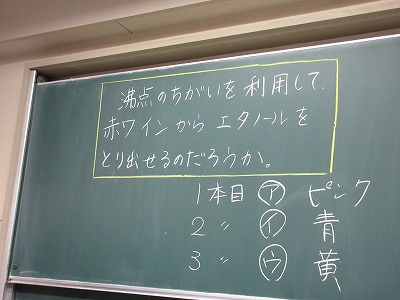 沸点のちがいを利用して、
赤ワインからエタノールを
とり出せるのだろうか。
1本目 ㋐ ピンク
2 〃 ㋑ 青
3 〃 ㋒ 黄